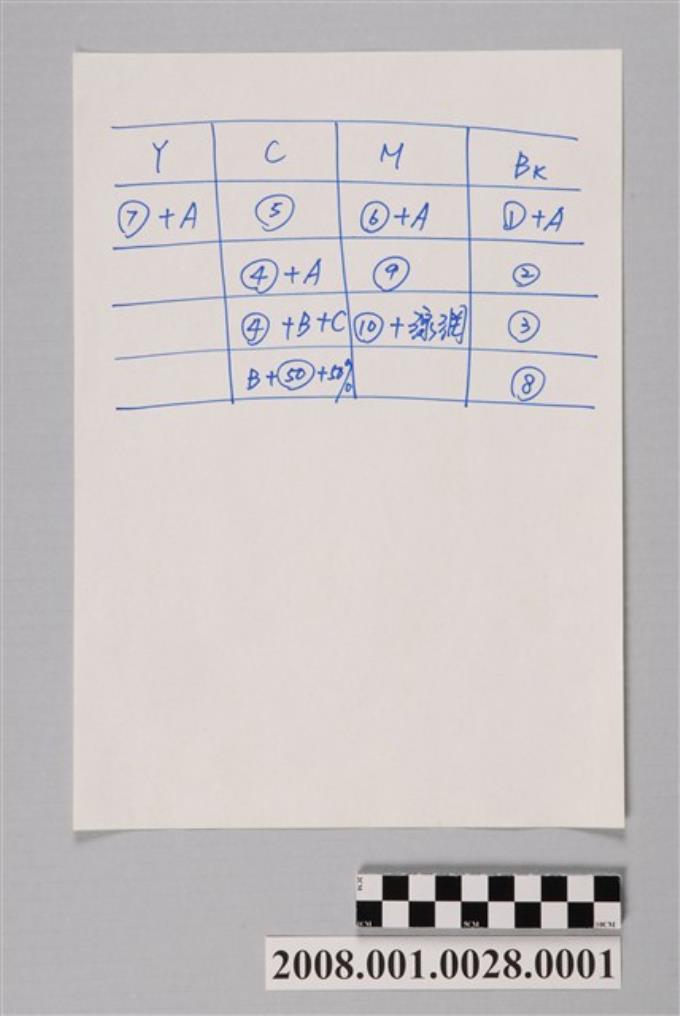 Y C M BK
⑦+A ⑤ ⑥+A ①+A
④+A ⑨ ②
④+B+C ⑩+漸網 ③
B+㊿+50% ⑧
1CM 5CM 10CM
2008.001.0028.0001